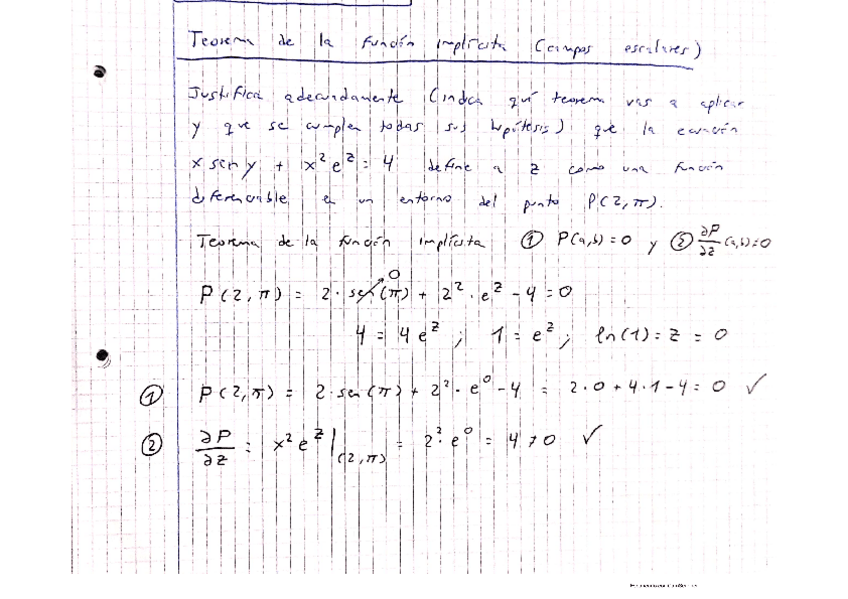 Teorema de la función implícita (campos escalares)
Justifica adecuadamente (indica qué teorema vas a aplicar
y que se cumplen todas sus hipótesis) que la ecuación
x sen y + x² e^z = 4 define a z como una función
diferenciable en un entorno del punto P(2,π).
Teorema de la función implícita ① P(a,b)=0 y ② ∂P/∂z (a,b)≠0
P(2,π) = 2·sen(π)→0 + 2²·e^z - 4 = 0
4 = 4e^z ; 1 = e^z ; ln(1) = z = 0
① P(2,π) = 2·sen(π) + 2²·e^0 - 4 = 2·0 + 4·1 - 4 = 0 ✓
② ∂P/∂z = x² e^z |(2,π) = 2²·e^0 = 4 ≠ 0 ✓